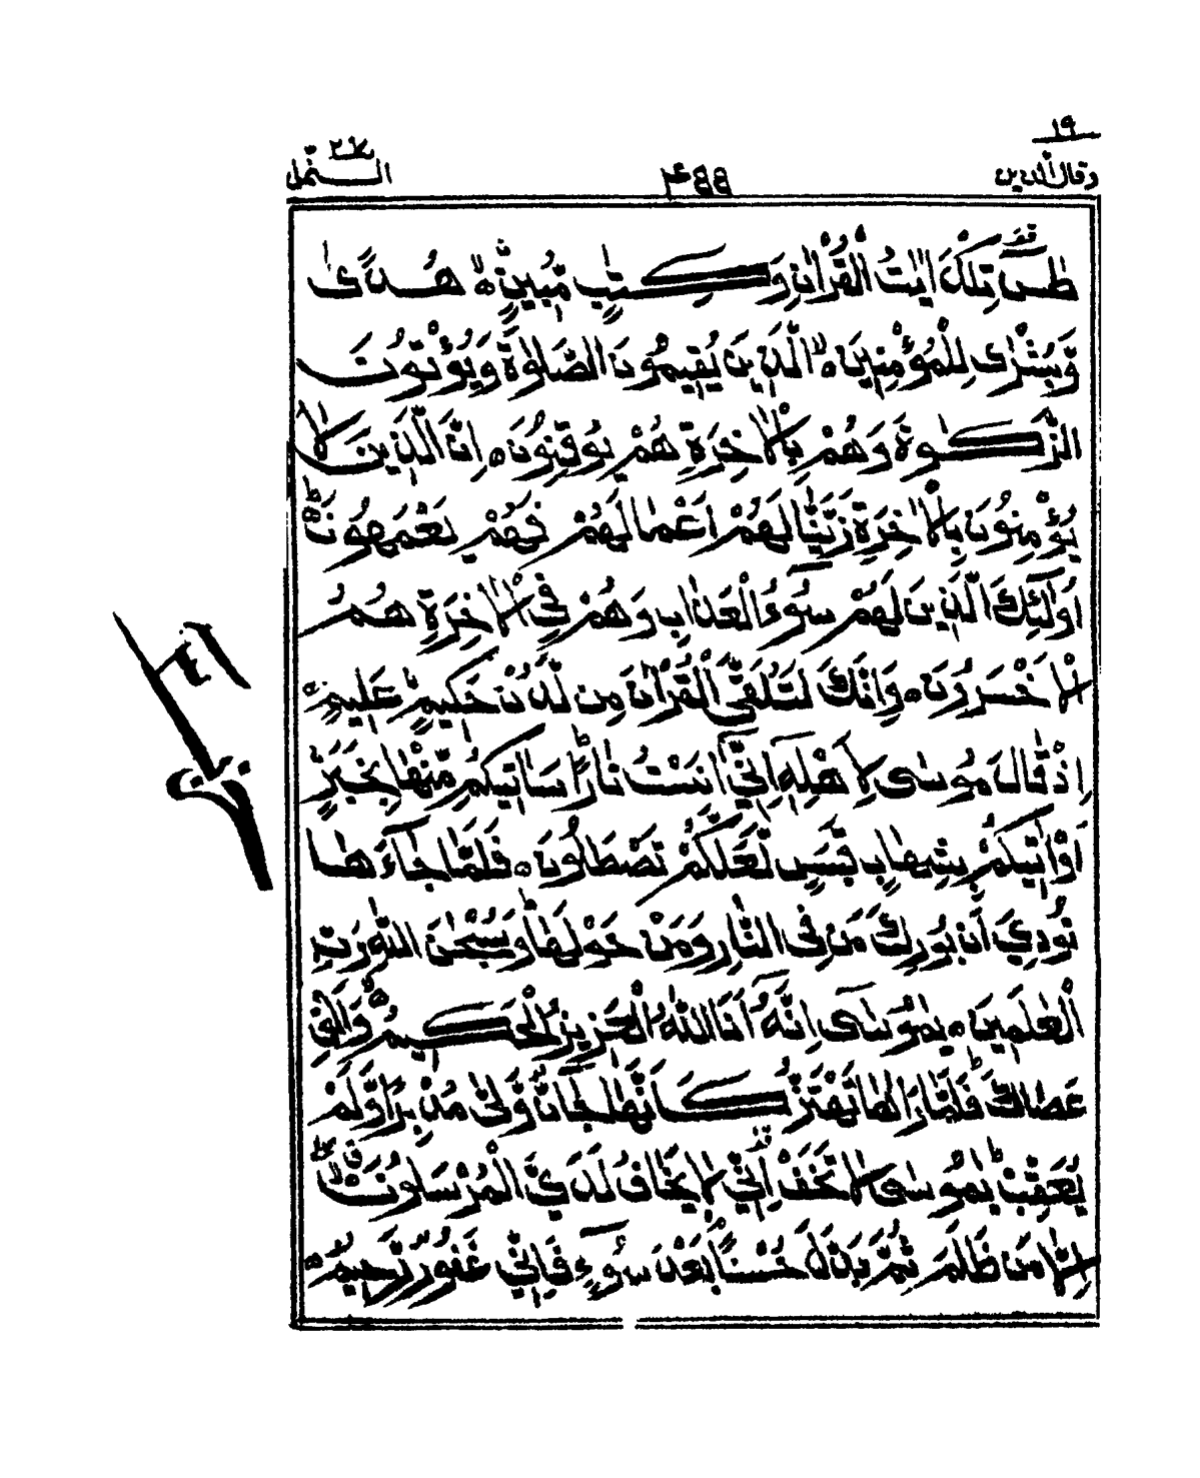 ١٩
وقال الذين
٤٥٥
النمل ٢٧
طٰسٓ تِلْكَ اٰيٰتُ الْقُرْاٰنِ وَكِتٰبٍ مُّبِيْنٍ ۙ هُدًى
وَّبُشْرٰى لِلْمُؤْمِنِيْنَ ۙ الَّذِيْنَ يُقِيْمُوْنَ الصَّلٰوةَ وَيُؤْتُوْنَ
الزَّكٰوةَ وَهُمْ بِالْاٰخِرَةِ هُمْ يُوْقِنُوْنَ ۝ اِنَّ الَّذِيْنَ لَا
يُؤْمِنُوْنَ بِالْاٰخِرَةِ زَيَّنَّا لَهُمْ اَعْمَالَهُمْ فَهُمْ يَعْمَهُوْنَ ؕ
اُولٰٓئِكَ الَّذِيْنَ لَهُمْ سُوْٓءُ الْعَذَابِ وَهُمْ فِى الْاٰخِرَةِ هُمُ
الْاَخْسَرُوْنَ ۝ وَاِنَّكَ لَتُلَقَّى الْقُرْاٰنَ مِنْ لَّدُنْ حَكِيْمٍ عَلِيْمٍ ۝
اِذْ قَالَ مُوْسٰى لِاَهْلِهٖٓ اِنِّىْٓ اٰنَسْتُ نَارًا ؕ سَاٰتِيْكُمْ مِّنْهَا بِخَبَرٍ
اَوْ اٰتِيْكُمْ بِشِهَابٍ قَبَسٍ لَّعَلَّكُمْ تَصْطَلُوْنَ ۝ فَلَمَّا جَآءَهَا
نُوْدِيَ اَنْۢ بُوْرِكَ مَنْ فِى النَّارِ وَمَنْ حَوْلَهَا ؕ وَسُبْحٰنَ اللّٰهِ رَبِّ
الْعٰلَمِيْنَ ۝ يٰمُوْسٰٓى اِنَّهٗٓ اَنَا اللّٰهُ الْعَزِيْزُ الْحَكِيْمُ ۙ وَاَلْقِ
عَصَاكَ ؕ فَلَمَّا رَاٰهَا تَهْتَزُّ كَاَنَّهَا جَآنٌّ وَّلّٰى مُدْبِرًا وَّلَمْ
يُعَقِّبْ ؕ يٰمُوْسٰى لَا تَخَفْ اِنِّىْ لَا يَخَافُ لَدَيَّ الْمُرْسَلُوْنَ
اِلَّا مَنْ ظَلَمَ ثُمَّ بَدَّلَ حُسْنًۢا بَعْدَ سُوْٓءٍ فَاِنِّىْ غَفُوْرٌ رَّحِيْمٌ ۝